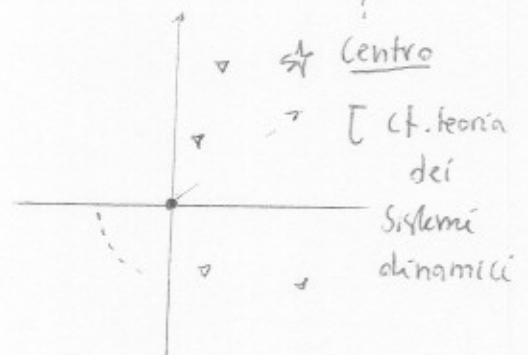 Centro
[ cf. teoria
dei
Sistemi
dinamici